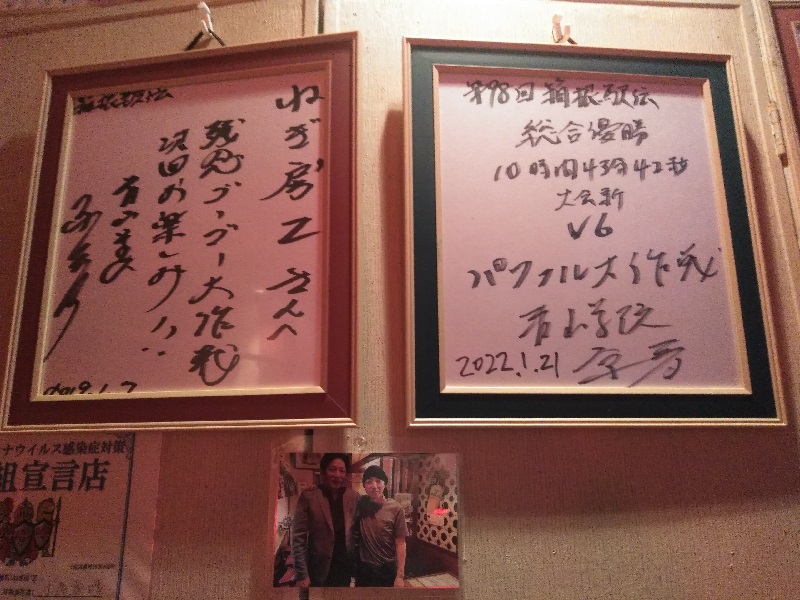 箱根駅伝
ねぎ房工さんへ
残念ゴーゴー大作戦
次回お楽しみ!!
2019.1.7
第98回箱根駅伝
総合優勝
10時間43分42秒
大会新
V6
パワフル大作戦
青山学院
原晋
2022.1.21
ナウイルス感染症対策
組宣言店